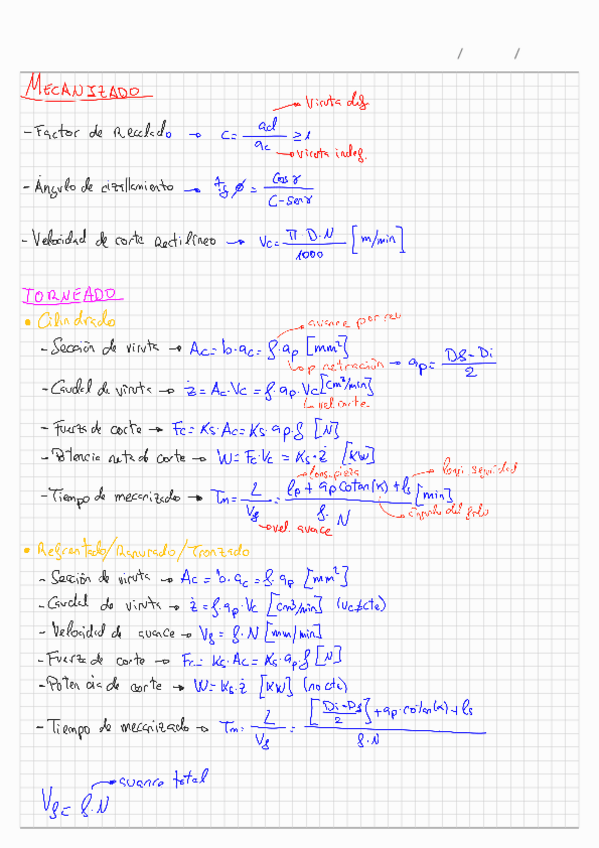 / /
MECANIZADO
- Factor de Recalado → C = ad / ac ≥ 1
Viruta def
Viruta indef.
- Ángulo de cizallamiento → tg ø = cos γ / C - sen γ
- Velocidad de corte Rectilíneo → Vc = π D·N / 1000 [m/min]
TORNEADO
• Cilindrado
avance por rev
- Sección de viruta → Ac = b·ac = f·ap [mm²]
→ ap = Df - Di / 2
- Caudal de viruta → ż = Ac·Vc = f·ap·Vc [cm³/min]
vel. corte
- Fuerza de corte → Fc = Ks·Ac = Ks·ap·f [N]
- Potencia neta de corte → W = Fc·Vc = Ks·ż [KW]
long. pieza
long seguridad
- Tiempo de mecanizado → Tm = L / Vf = lp + ap cotan(κ) + ls / f·N [min]
vel. avance
ángulo del filo
• Refrentado/Ranurado/Tronzado
- Sección de viruta → Ac = b·ac = f·ap [mm²]
- Caudal de viruta → ż = f·ap·Vc [cm³/min] (vc≠cte)
- Velocidad de avance → Vf = f·N [mm/min]
- Fuerza de corte → Fc = Ks·Ac = Ks·ap f [N]
- Potencia de corte → W = Ks·ż [KW] (no cte)
- Tiempo de mecanizado → Tm = L / Vf = [Di-Df / 2] + ap·cotan(κ) + ls / f·N
avance total
Vf = f·N